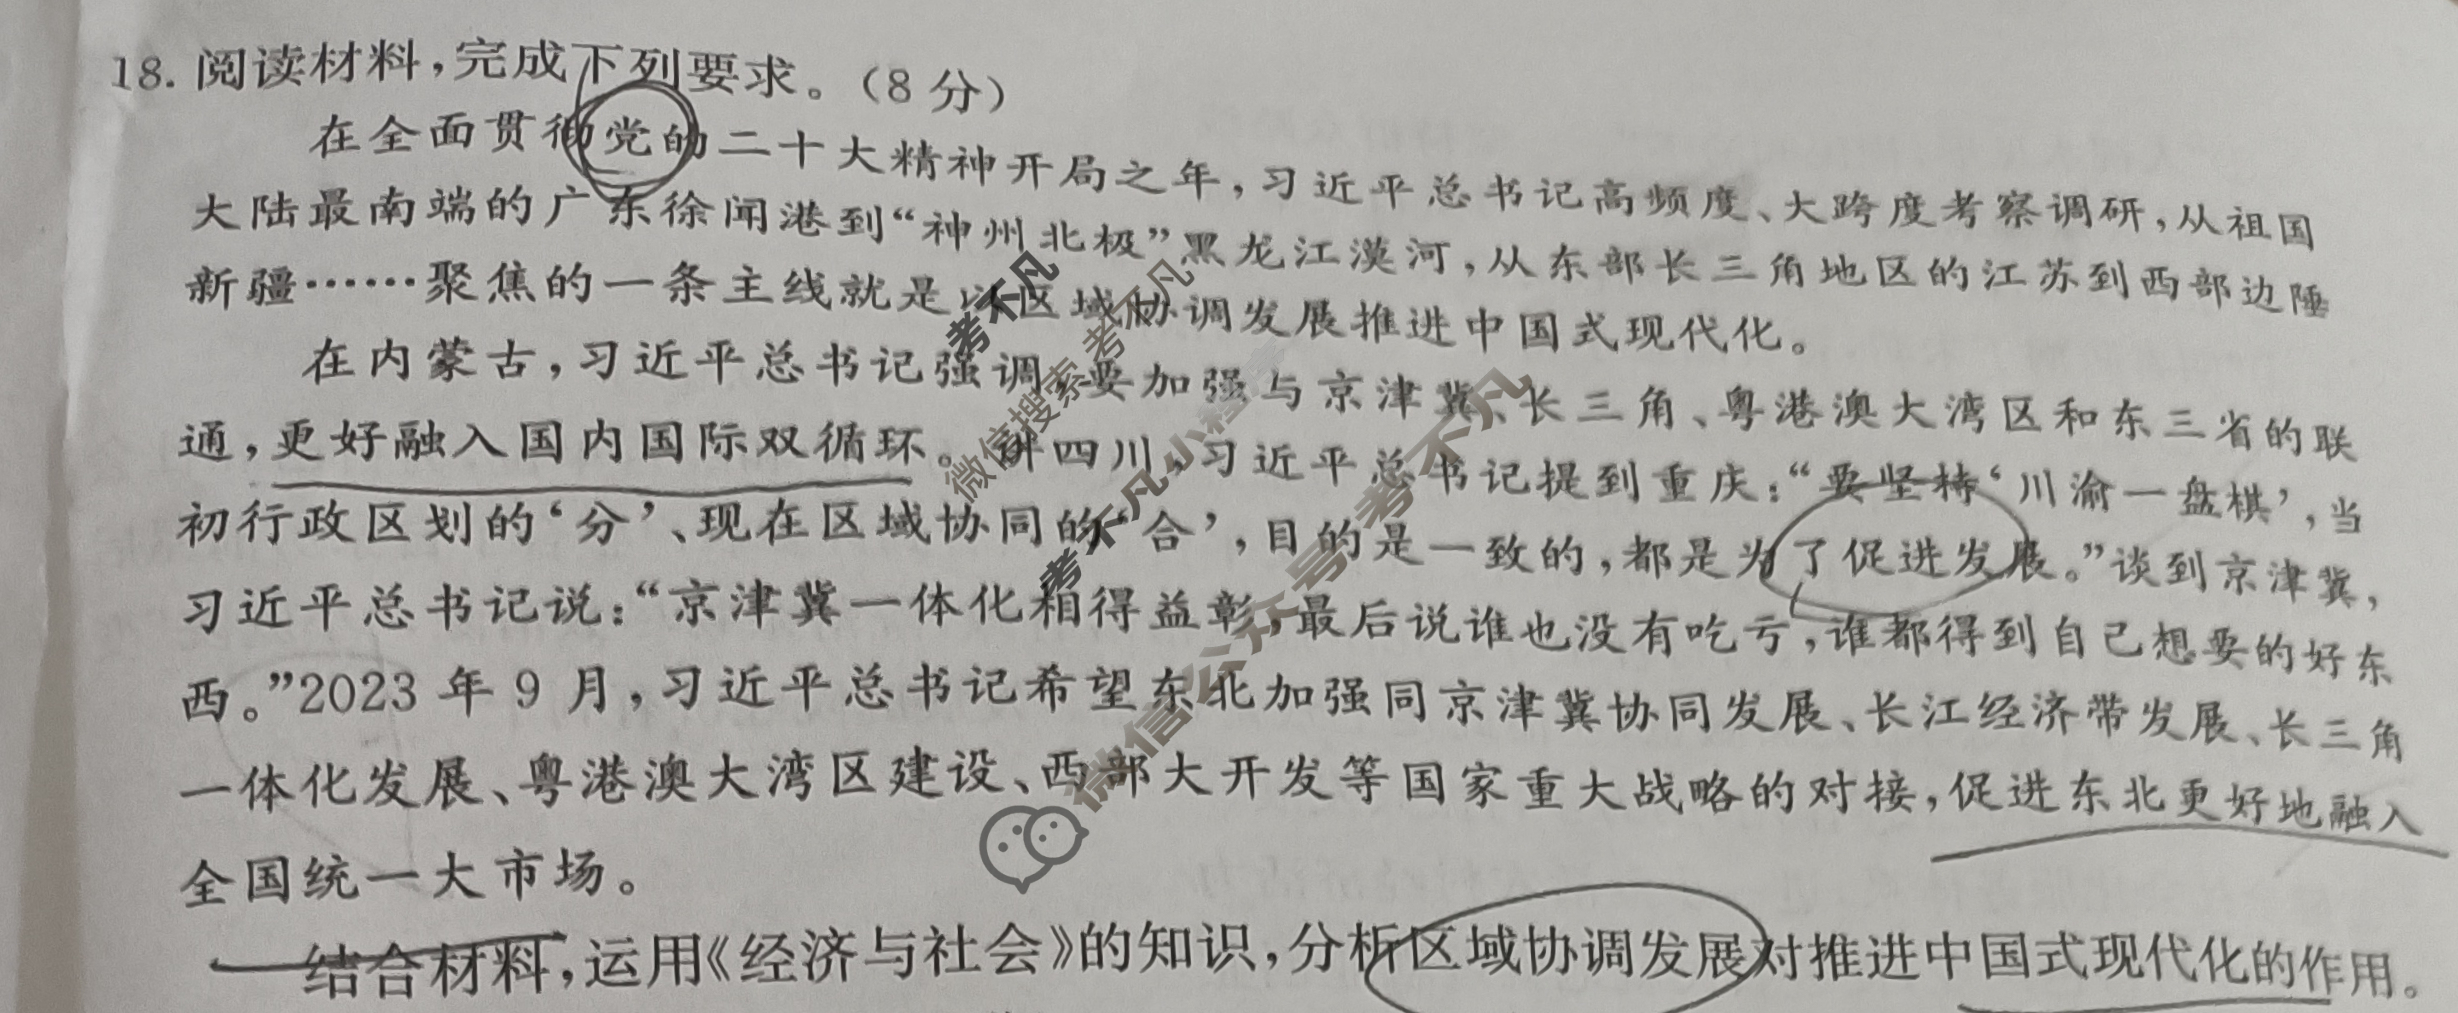 18. 阅读材料，完成下列要求。（8 分）
在全面贯彻党的二十大精神开局之年，习近平总书记高频度、大跨度考察调研，从祖国
大陆最南端的广东徐闻港到“神州北极”黑龙江漠河，从东部长三角地区的江苏到西部边陲
新疆……聚焦的一条主线就是以区域协调发展推进中国式现代化。
在内蒙古，习近平总书记强调，要加强与京津冀、长三角、粤港澳大湾区和东三省的联
通，更好融入国内国际双循环。讲四川，习近平总书记提到重庆：“要坚持‘川渝一盘棋’，当
初行政区划的‘分’、现在区域协同的‘合’，目的是一致的，都是为了促进发展。”谈到京津冀，
习近平总书记说：“京津冀一体化相得益彰，最后说谁也没有吃亏，谁都得到自己想要的好东
西。”2023 年 9 月，习近平总书记希望东北加强同京津冀协同发展、长江经济带发展、长三角
一体化发展、粤港澳大湾区建设、西部大开发等国家重大战略的对接，促进东北更好地融入
全国统一大市场。
结合材料，运用《经济与社会》的知识，分析区域协调发展对推进中国式现代化的作用。
考不凡
微信搜索考不凡
考不凡小程序
微信公众号考不凡